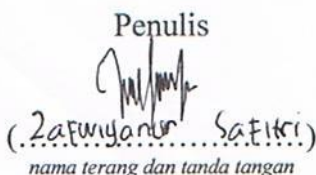 Penulis
(Zafwiyanur Safitri)
nama terang dan tanda tangan